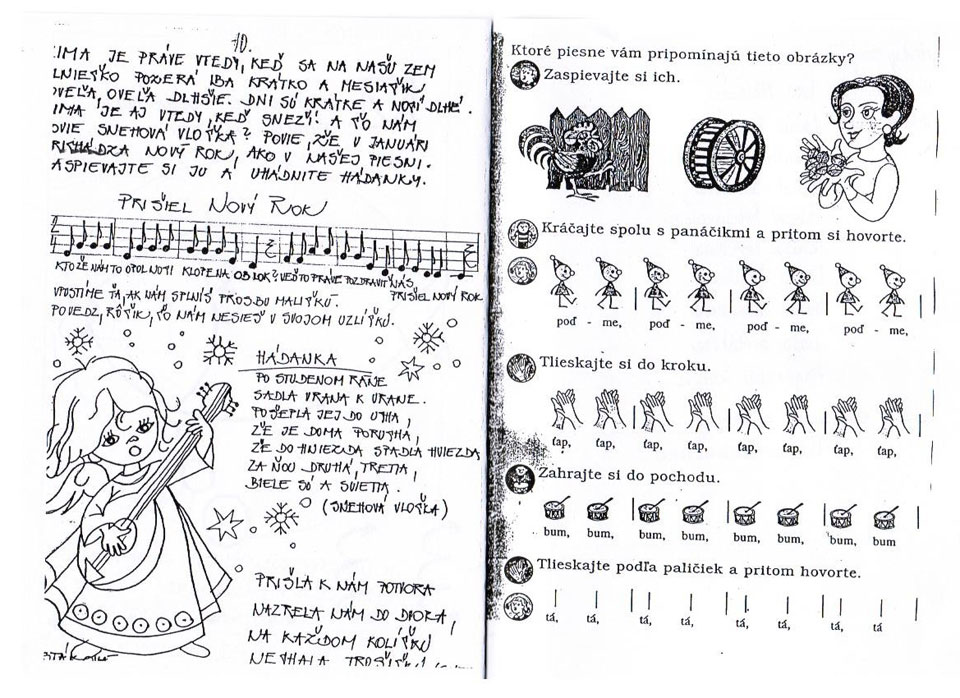 10.
IMA JE PRÁVE VTEDY, KEĎ SA NA NAŠU ZEM
LNIEČKO POZERÁ IBA KRÁTKO A MESIAČIK
OVEĽA, OVEĽA DLHŠIE. DNI SÚ KRÁTKE A NOCI DLHÉ.
IMA JE AJ VTEDY, KEĎ SNEŽÍ. A ČO NÁM
OVIE SNEHOVÁ VLOČKA? POVIE, ŽE V JANUÁRI
RICHÁDZA NOVÝ ROK, AKO V NAŠEJ PIESNI.
ASPIEVAJTE SI JU A UHÁDNITE HÁDANKY.
PRIŠIEL NOVÝ ROK
KTOŽE NÁM TO O POLNOTI KLOPE NA OBLOK? VEĎ TO PRÁVE POZDRAVIŤ NÁS,
PRIŠIEL NOVÝ ROK
VPUSTÍME ŤA, AK NÁM SPLNÍŠ PROSBU MALIČKÚ.
POVEDZ, RÔČIK, ČO NÁM NESIEŠ V SVOJOM UZLÍČKU.
HÁDANKA
PO STUDENOM RÁNE
SADLA VRANA K VRANE.
POŠEPLA JEJ DO UCHA,
ŽE JE DOMA PORUCHA,
ŽE DO HNIEZDA SPADLA HVIEZDA
ZA ŇOU DRUHÁ, TRETIA,
BIELE SÚ A SVIETIA.
(SNEHOVÁ VLOČKA)
PRIŠLA K NÁM POTVORA
NAZRELA NÁM DO DVORA,
NA KAŽDOM KOLÍČKU
NECHALA TROŠIČKU
Ktoré piesne vám pripomínajú tieto obrázky?
Zaspievajte si ich.
Kráčajte spolu s panáčikmi a pritom si hovorte.
poď - me, poď - me, poď - me, poď - me,
Tlieskajte si do kroku.
ťap, ťap, ťap, ťap, ťap, ťap, ťap, ťap,
Zahrajte si do pochodu.
bum, bum, bum, bum, bum, bum, bum, bum
Tlieskajte podľa paličiek a pritom hovorte.
tá, tá, tá, tá, tá, tá, tá, tá